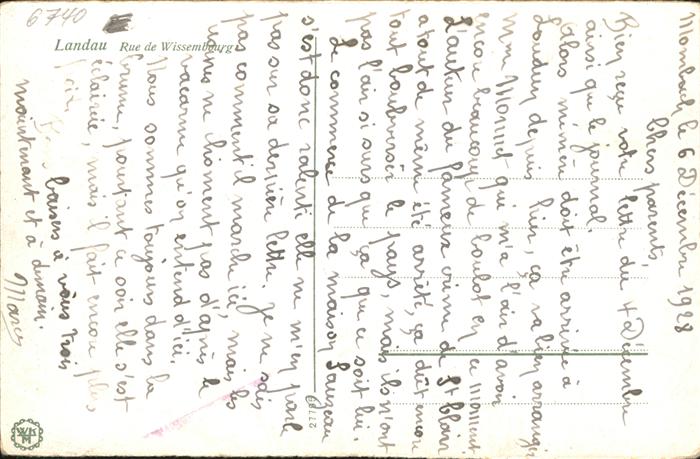 6740
Landau Rue de Wissembourg
le 6 Décembre 1928
Chers parents,
Bien reçu votre lettre du 4 Décembre
ainsi que le journal.
Alors mémère doit être arrivée à
Loudun depuis hier, ça va bien arranger
Mme Monnet qui m'a l'air d'avoir
encore beaucoup de boulot en ce moment
L'auteur du fameux crime de St
a tout de même été arrêté, ça dût encore
tout boulverser le pays, mais ils n'ont
pas l'air si surs que ça que ce soit lui.
Le commerce de la maison Lauzeau
s'est donc ralenti elle ne m'en parle
pas sur sa dernière lettre. Je ne sais
pas comment il marche ici, mais les
usines ne chôment pas d'après le
vacarme qu'on entend d'ici
Nous sommes toujours dans la
brume, pourtant ce soir elle s'est
éclaircie, mais il fait encore plus
Bons baisers à vous trois
maintenant et à demain.
Marc
27799